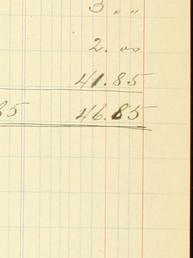 3 „ „
2. 00
41.85
85 46.85